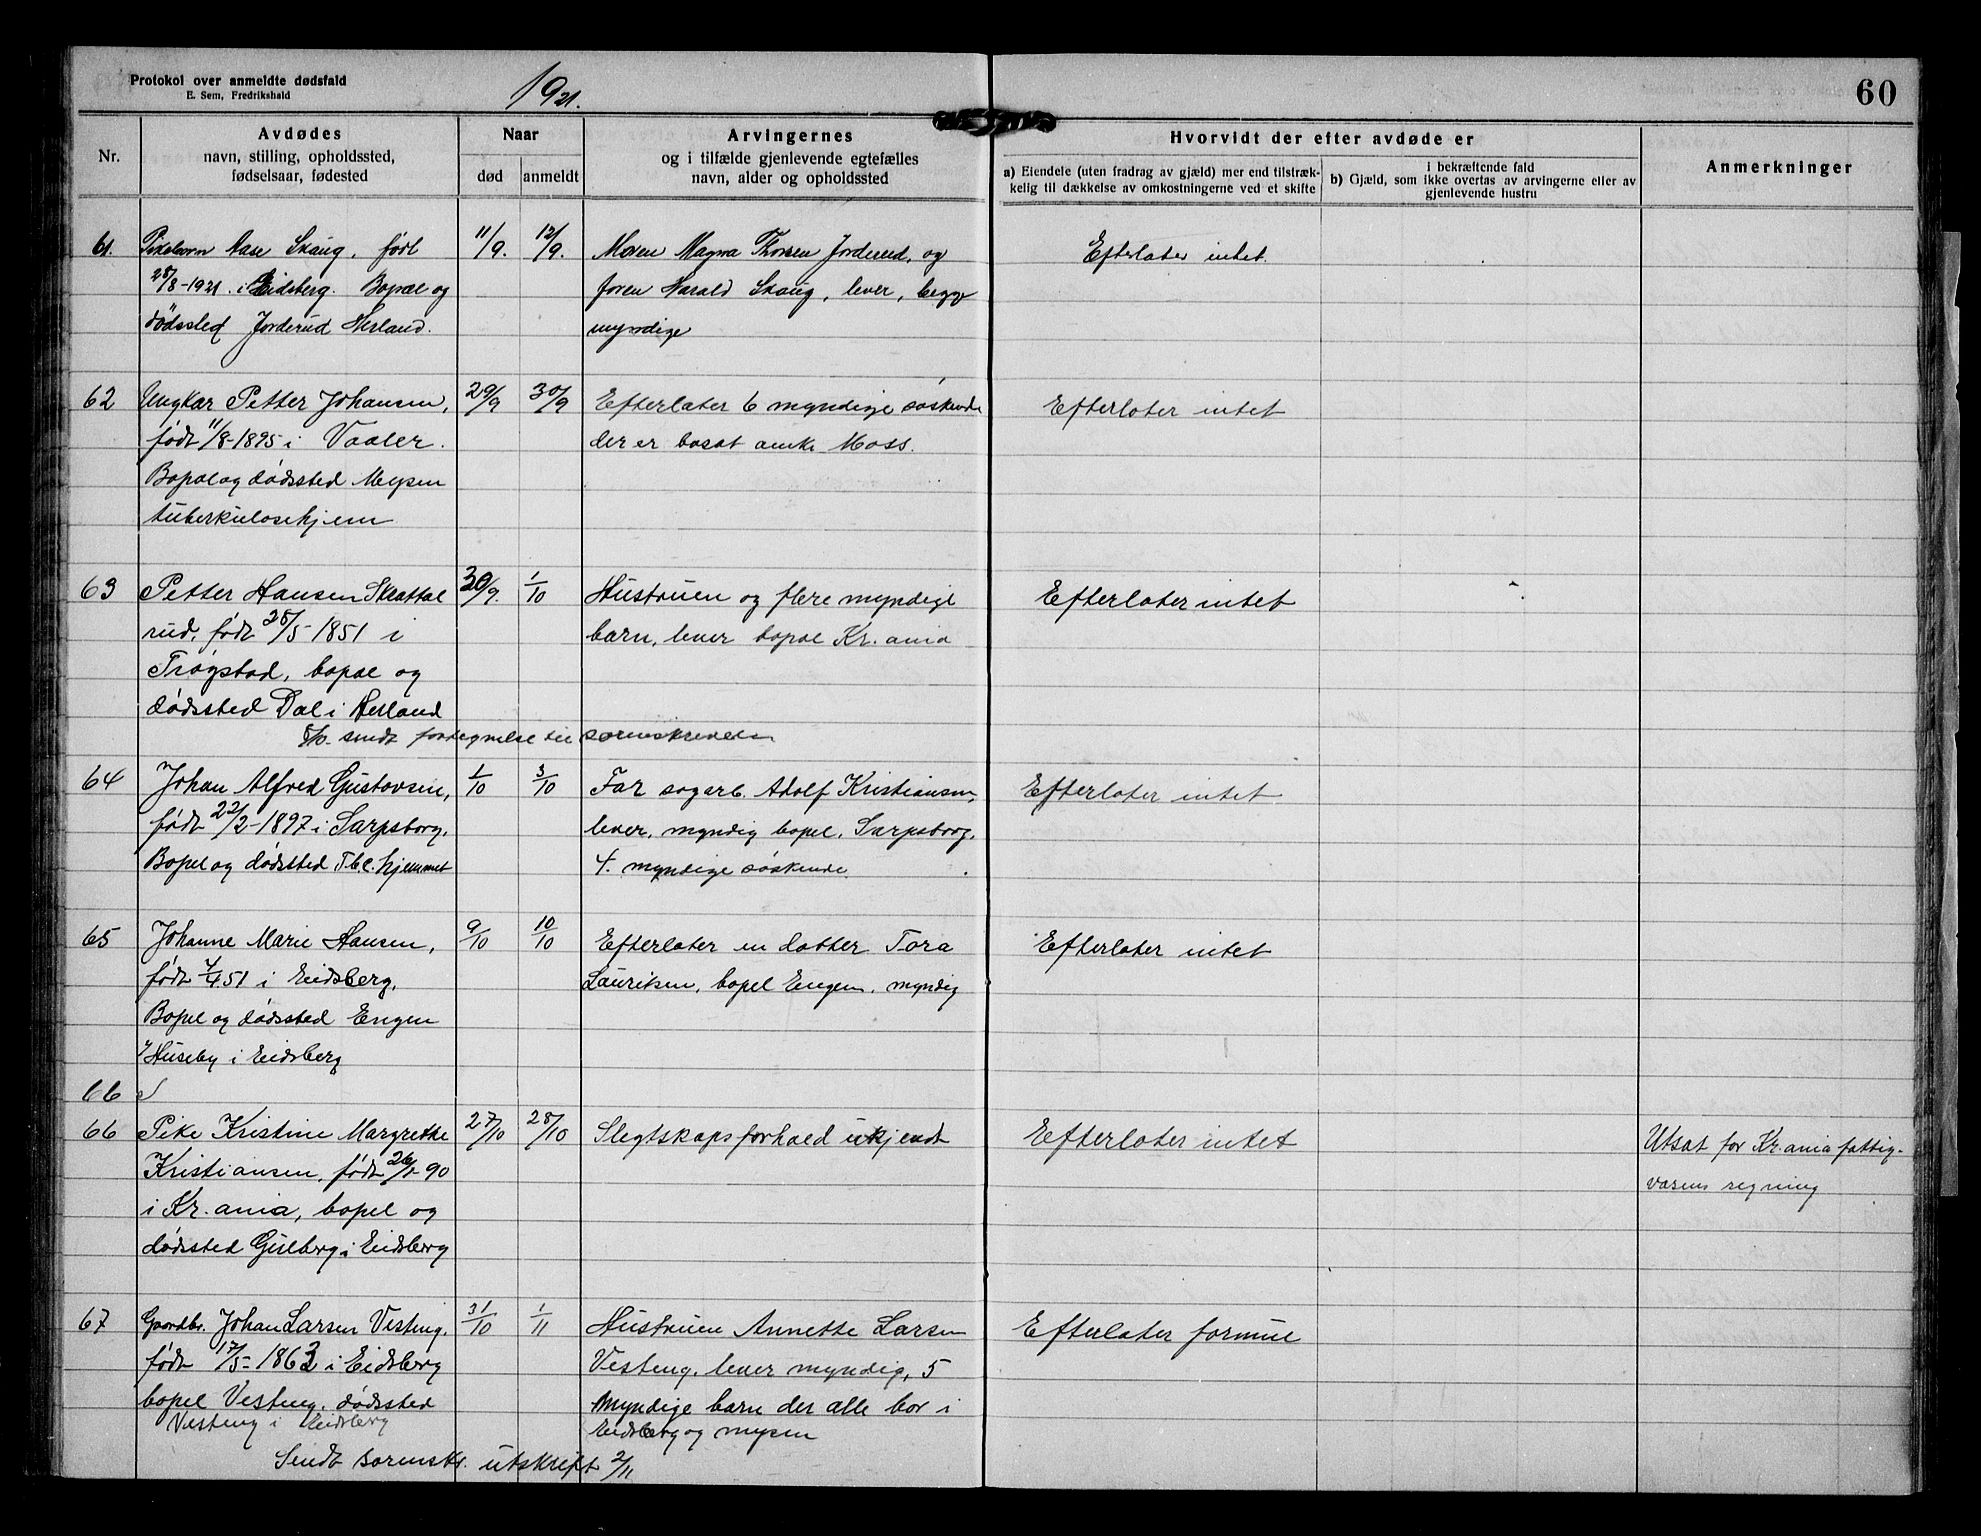 Protokol over anmeldte dødsfald
E. Sem, Fredrikshald
1921.
60
Nr.
Avdødes
navn, stilling, opholdssted,
fødselsaar, fødested
Naar
død
anmeldt
Arvingernes
og i tilfælde gjenlevende egtefælles
navn, alder og opholdssted
Hvorvidt der efter avdøde er
a) Eiendele (uten fradrag av gjæld) mer end tilstræk-
kelig til dækkelse av omkostningerne ved et skifte
i bekræftende fald
b) Gjæld, som ikke overtas av arvingerne eller av
gjenlevende hustru
Anmerkninger
61. Pikebarn Aase Skaug, født 11/9. 12/9. Moren Magna Thorsen Jorderud, og Efterlater intet.
28/8-1921. i Eidsberg. Bopæl og faren Harald Skaug, lever, begge
dødssted Jorderud Herland. myndige
62 Ungkar Petter Johansen, 29/9 30/9 Efterlater 6 myndige søskende Efterlater intet
født 11/8-1895 i Vaaler. der er bosat omkr. Moss.
Bopæl og dødssted Mysen
tuberkulosehjem
63 Petter Hansen Skrattal 30/9. 1/10 Hustruen og flere myndige Efterlater intet
rud, født 28/5-1851 i barn, lever bopæl Kr.ania
Trøgstad, bopæl og
dødssted Dal i Herland
8/10. sendt fortegnelse til sorenskriveren
64 Johan Alfred Gustavsen, 1/10 3/10 Far sagarb. Adolf Kristiansen, Efterlater intet
født 22/2-1897 i Sarpsborg. lever, myndig bopel, Sarpsborg.
Bopel og dødssted Tbc. hjemmet 4. myndige søskende.
65 Johanne Marie Hansen, 9/10 10/10 Efterlater en datter Tora Efterlater intet
født 7/4 51 i Eidsberg. Lauritsen, bopel Engen, myndig
Bopel og dødssted Engen
/Huseby i Eidsberg
66
66 Pike Kristine Margrethe 27/10 28/10 Slegtskapsforhold ukjendt Efterlater intet Utsat for Kr.ania fattig-
Kristiansen, født 90 væsens regning
i Kr.ania, bopel og
dødssted Gulberg i Eidsberg
67 Gaardbr. Johan Larsen Vesteng, 31/10 1/11 Hustruen Annette Larsen Efterlater formue
født 17/5-1863 i Eidsberg Vesteng, lever myndig, 5
bopel Vesteng, dødssted myndige barn der alle bor i
Vesteng i Eidsberg Eidsberg og mysen
Sendt sorenskr. utskrift 2/11